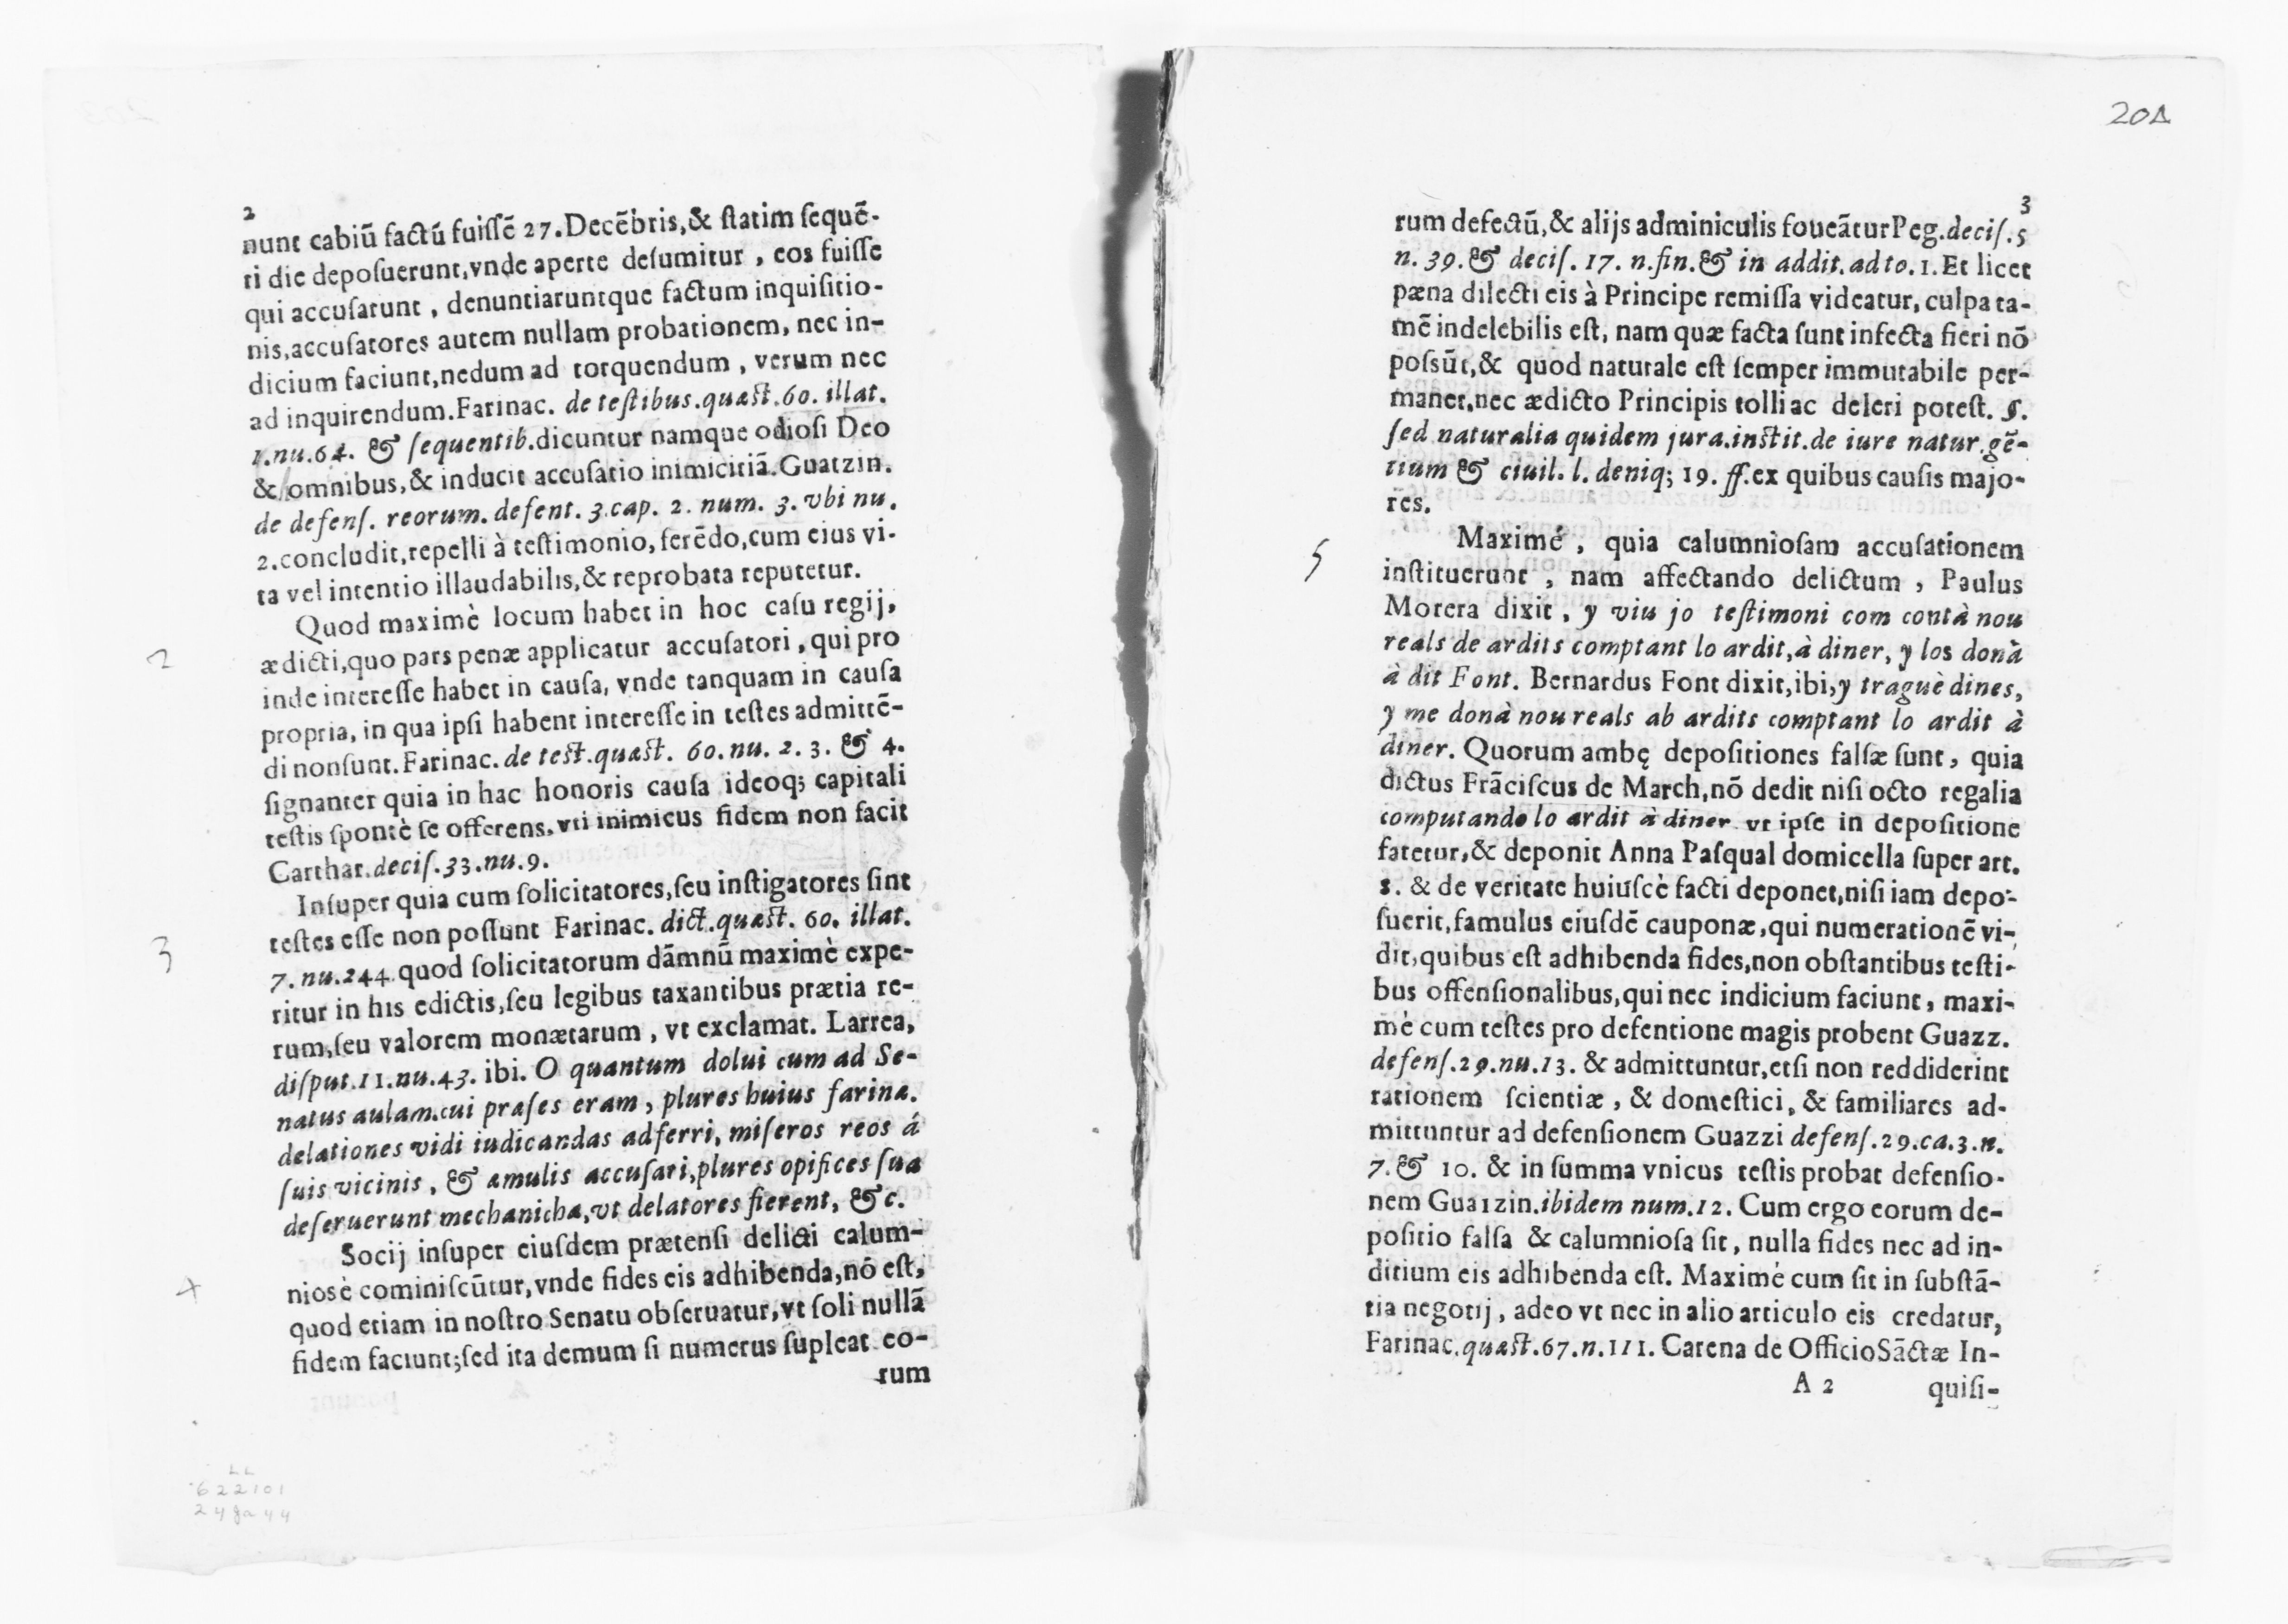 2
nunt cabiũ factũ fuiſſẽ 27.Decẽbris,& ſtatim ſequẽ-
ti die depoſuerunt,vnde aperte deſumitur , eos fuiſſe
qui accuſarunt , denuntiaruntque factum inquiſitio-
nis,accuſatores autem nullam probationem, nec in-
dicium faciunt,nedum ad torquendum , verum nec
ad inquirendum.Farinac. de teſtibus.quæſt.60. illat.
1.nu.64. & ſequentib.dicuntur namque odioſi Deo
& omnibus,& inducit accuſatio inimicitiã.Guatzin.
de defenſ. reorum. defent. 3.cap. 2. num. 3. vbi nu.
2.concludit,repelli à teſtimonio, ferẽdo,cum eius vi-
ta vel intentio illaudabilis,& reprobata reputetur.
Quod maximè locum habet in hoc caſu regij,
2
ædicti,quo pars penæ applicatur accuſatori , qui pro
inde intereſſe habet in cauſa, vnde tanquam in cauſa
propria, in qua ipſi habent intereſſe in teſtes admittẽ-
di nonſunt.Farinac. de teſt.quæſt. 60. nu. 2. 3. & 4.
ſignanter quia in hac honoris cauſa ideoq; capitali
teſtis ſpontè ſe offerens, vti inimicus fidem non facit
Carthar.deciſ.33.nu.9.
Inſuper quia cum ſolicitatores,ſeu inſtigatores ſint
3
teſtes eſſe non poſſunt Farinac. dict.quæſt. 60. illat.
7. nu.244.quod ſolicitatorum dãmnũ maximè expe-
ritur in his edictis,ſeu legibus taxantibus prætia re-
rum,ſeu valorem monætarum , vt exclamat. Larrea,
diſput.11.nu.43. ibi. O quantum dolui cum ad Se-
natus aulam.cui præſes eram, plures huius farinæ.
delationes vidi iudicandas adferri, miſeros reos á
ſuis vicinis , & æmulis accuſari,plures opifices ſua
deſeruerunt mechanicha,vt delatores fierent, &c.
Socij inſuper eiuſdem prætenſi delicti calum-
4
niosè cominiſcũtur,vnde fides eis adhibenda,nõ eſt,
quod etiam in noſtro Senatu obſeruatur,vt ſoli nullã
fidem faciunt;ſed ita demum ſi numerus ſupleat eo-
rum
LL
622101
204
3
rum defectũ,& alijs adminiculis foueãturPeg.deciſ.5
n. 39.& deciſ. 17. n.fin.& in addit.adto.1.Et licet
pæna dilecti eis à Principe remiſſa videatur, culpa ta-
mẽ indelebilis eſt, nam quæ facta ſunt infecta fieri nõ
poſsũt,& quod naturale eſt ſemper immutabile per-
manet,nec ædicto Principis tolli ac deleri poteſt. §.
ſed naturalia quidem jura.inſtit.de iure natur.gẽ-
tium & ciuil. l. deniq; 19. ff.ex quibus cauſis majo-
res.
5
Maximè , quia calumnioſam accuſationem
inſtituerunt , nam affectando delictum , Paulus
Morera dixit , y viu jo teſtimoni com contà nou
reals de ardits comptant lo ardit,à diner, y los donà
à dit Font. Bernardus Font dixit,ibi,y traguè dines,
y me donà nou reals ab ardits comptant lo ardit à
diner. Quorum ambę depoſitiones falſæ ſunt, quia
dictus Frãciſcus de March,nõ dedit niſi octo regalia
computando lo ardit à diner vt ipſe in depoſitione
fatetur,& deponit Anna Paſqual domicella ſuper art.
8. & de veritate huiuſcè facti deponet,niſi iam depo-
ſuerit,famulus eiuſdẽ cauponæ,qui numerationẽ vi-
dit,quibus eſt adhibenda fides,non obſtantibus teſti-
bus offenſionalibus,qui nec indicium faciunt, maxi-
mè cum teſtes pro defentione magis probent Guazz.
defenſ.29.nu.13. & admittuntur,etſi non reddiderint
rationem ſcientiæ , & domeſtici, & familiares ad-
mittuntur ad defenſionem Guazzi defenſ.29.ca.3.n.
7.& 10. & in ſumma vnicus teſtis probat defenſio-
nem Guatzin.ibidem num.12. Cum ergo eorum de-
poſitio falſa & calumnioſa ſit, nulla fides nec ad in-
ditium eis adhibenda eſt. Maximè cum ſit in ſubſtã-
tia negotij, adeo vt nec in alio articulo eis credatur,
Farinac.quæſt.67.n.111. Carena de OfficioSãctæ In-
A 2 quiſi-